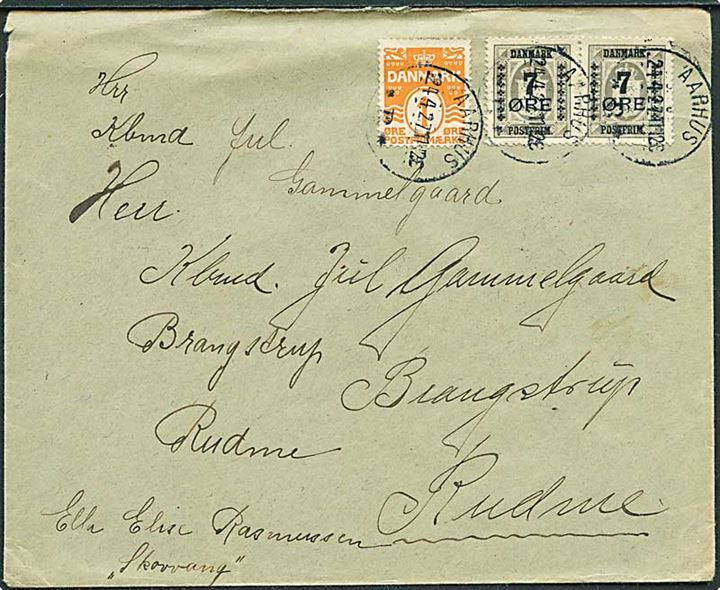 DANMARK
1
ØRE ØRE
POSTFRIM.
DANMARK
7
ØRE
POSTFRIM.
DANMARK
7
ØRE
POSTFRIM.
AARHUS
AARHUS
AARHUS
Hrr
Kbmd Jul.
Gammelgaard
Herr.
Kbmd. Jul Gammelgaard
Brangstrup
Brangstrup
Rudme
Rudme.
Ella Elise Rasmussen
„Skovvang"